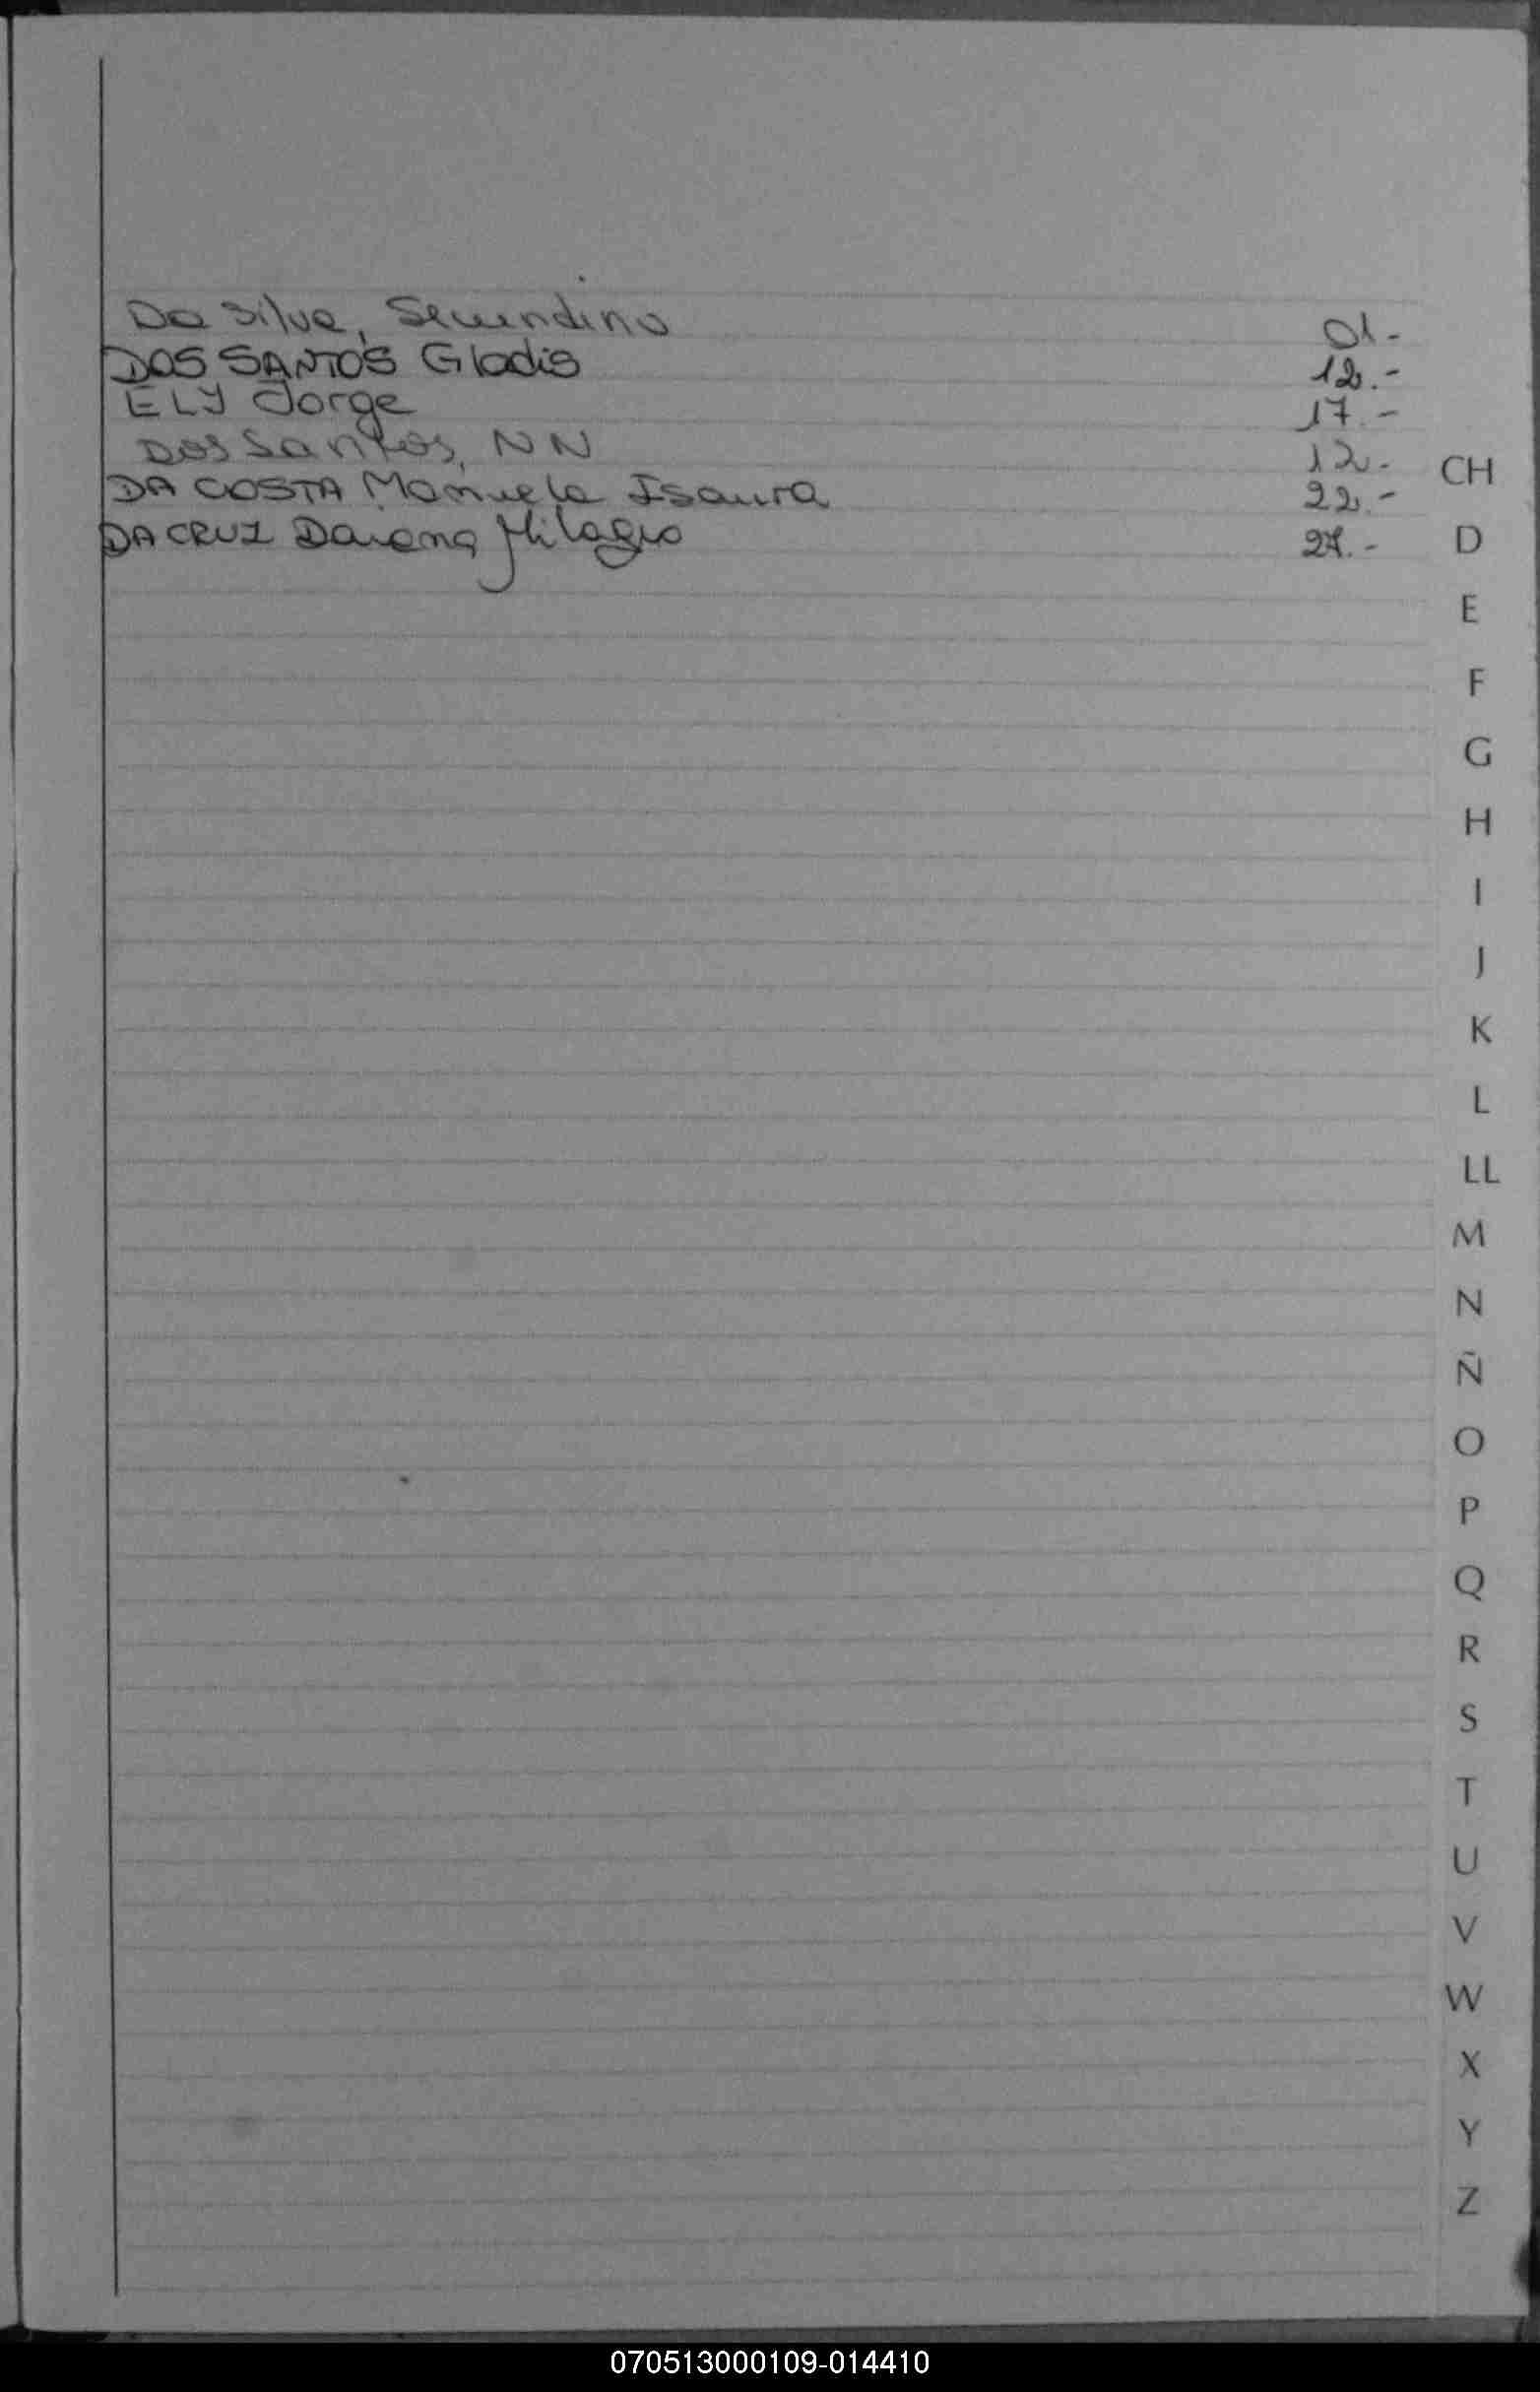 Da Silva, Secundino 01.-
DOS SANTOS Gladis 12.-
ELY Jorge 17.-
Dos Santos, NN 12.-
DA COSTA Manuela Isaura 22.-
DA CRUZ Milagro 27.-
CH
D
E
F
G
H
I
J
K
L
LL
M
N
Ñ
O
P
Q
R
S
T
U
V
W
X
Y
Z
070513000109-014410